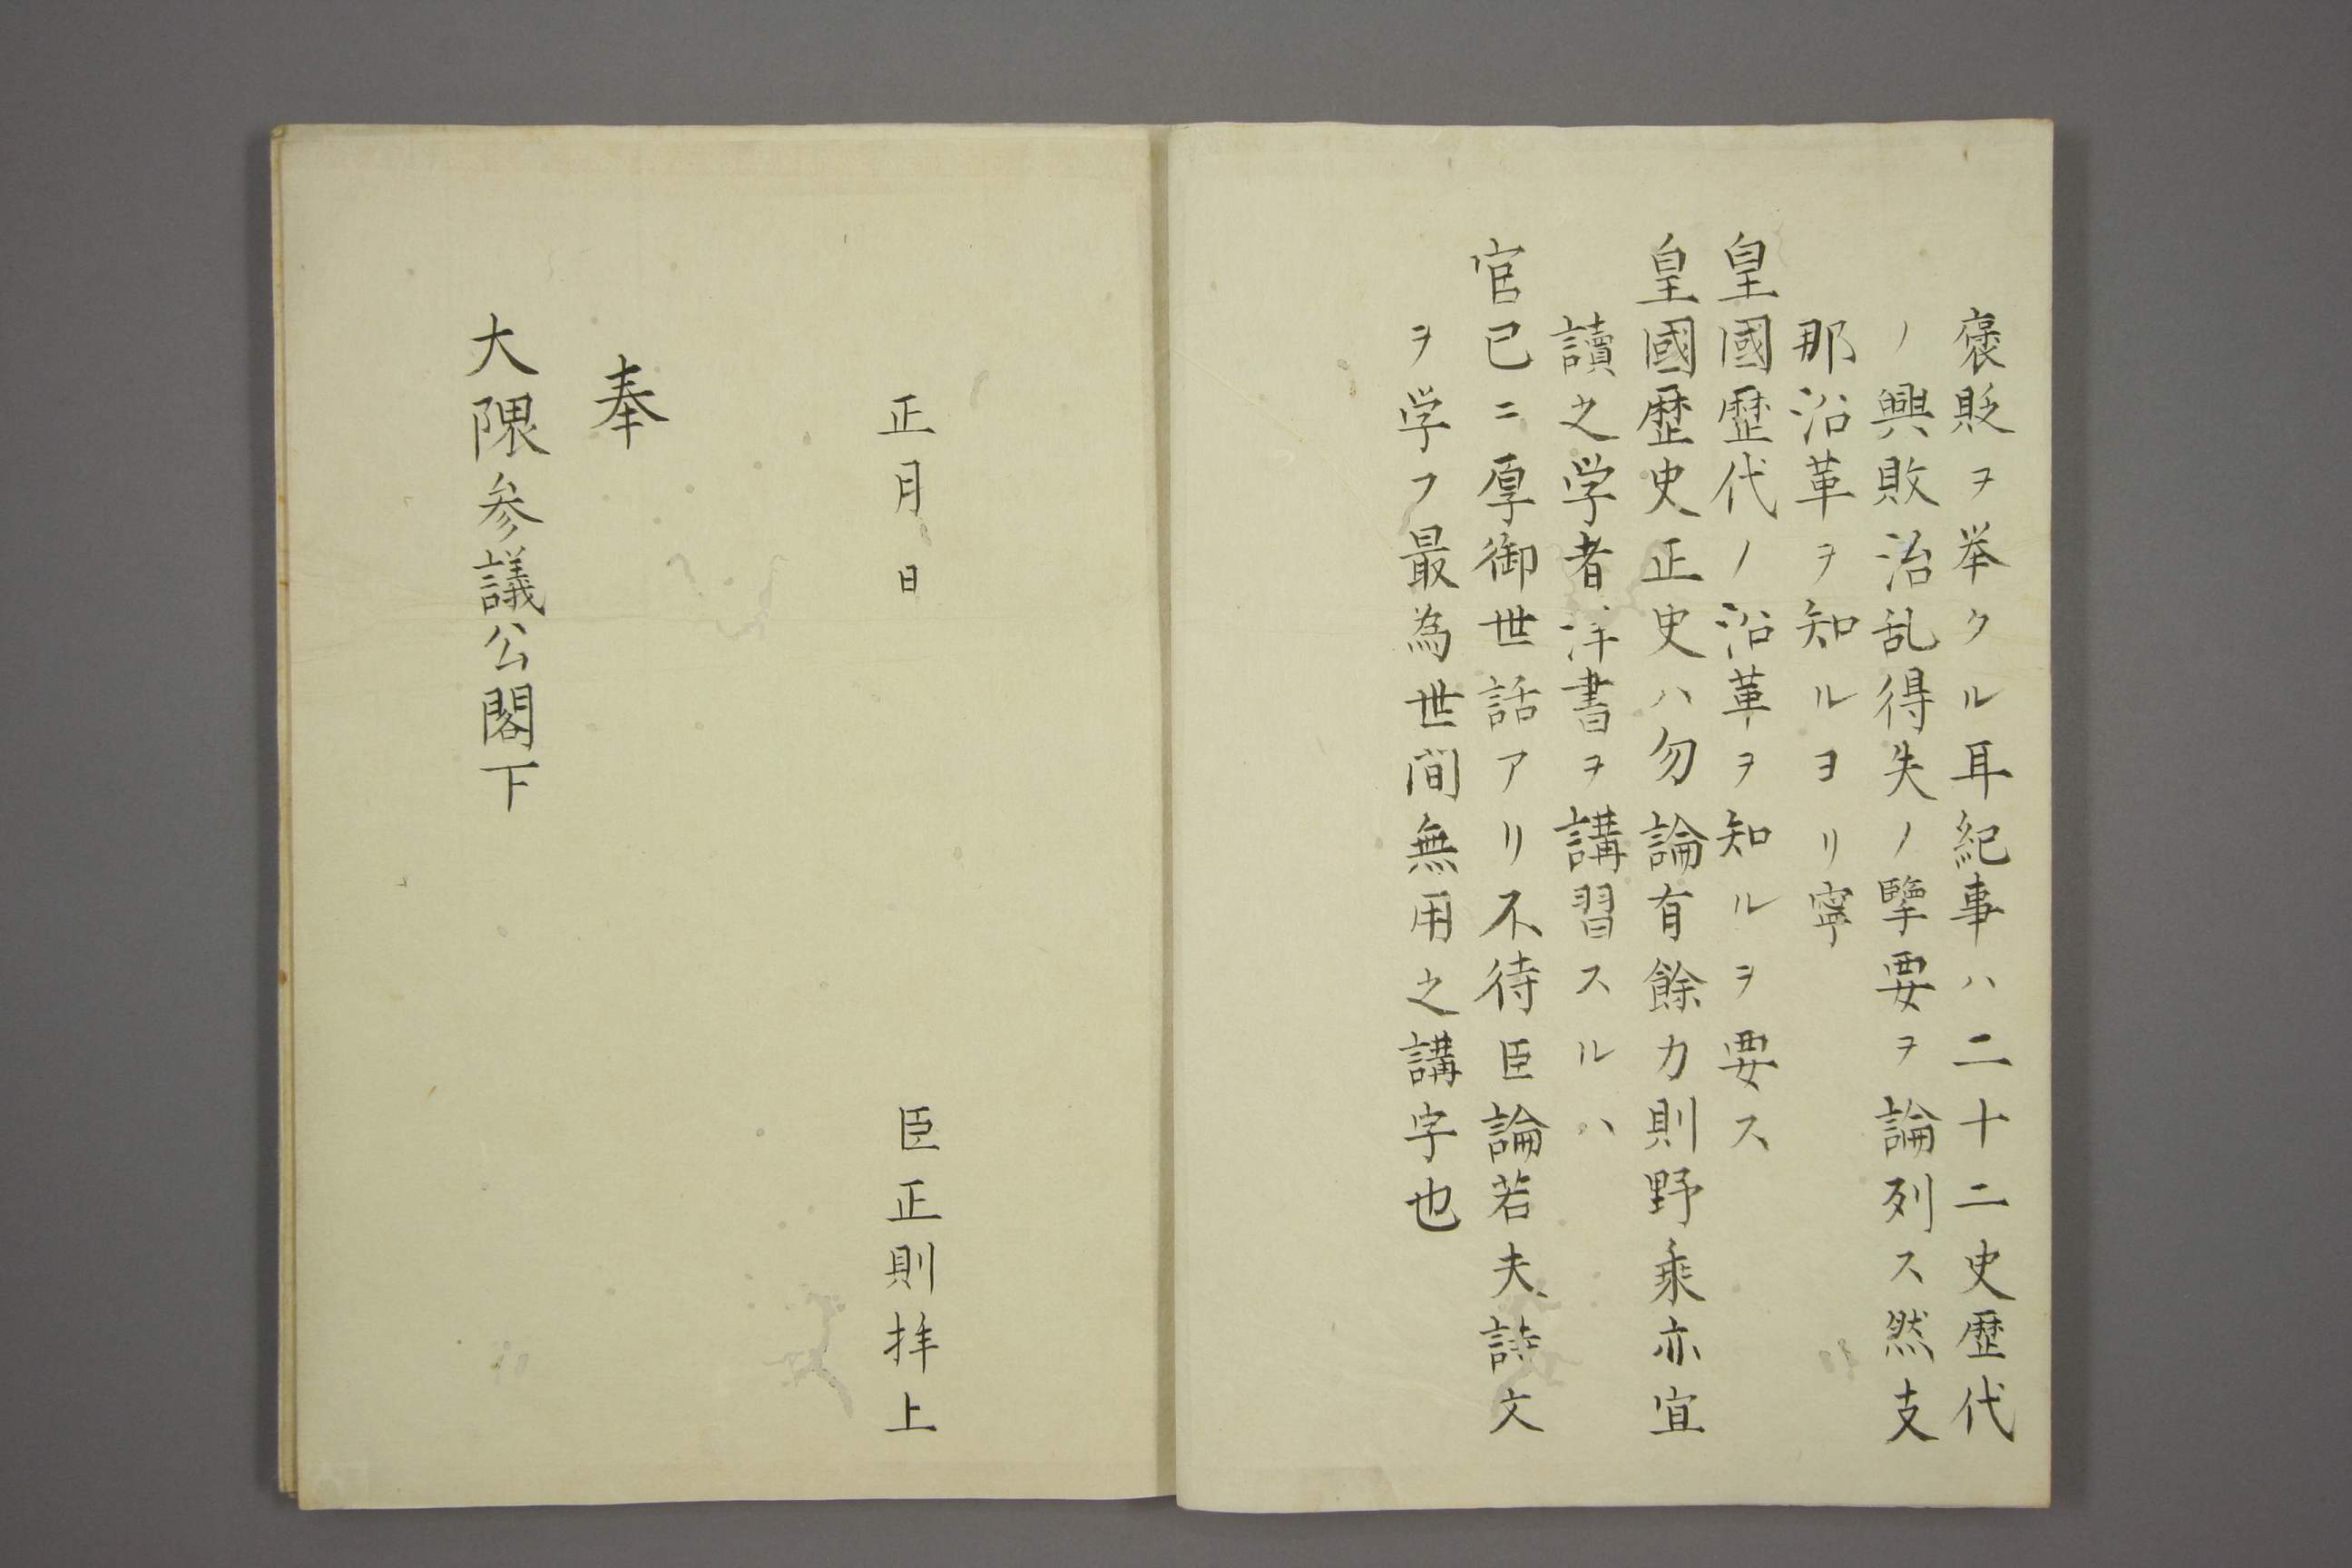 褒貶ヲ挙クル耳紀事ハ二十二史歴代
ノ興敗治乱得失ノ擥要ヲ論列ス然支
那沿革ヲ知ルヨリ寧
皇國歴代ノ沿革ヲ知ルヲ要ス
皇國歴史正史ハ勿論有餘力則野乗亦宜
讀之学者洋書ヲ講習スルハ
官已ニ厚御世話アリ不待臣論若夫詩文
ヲ学フ最為世間無用之講字也
正月 日
臣正則拝上
奉
大隈参議公閣下